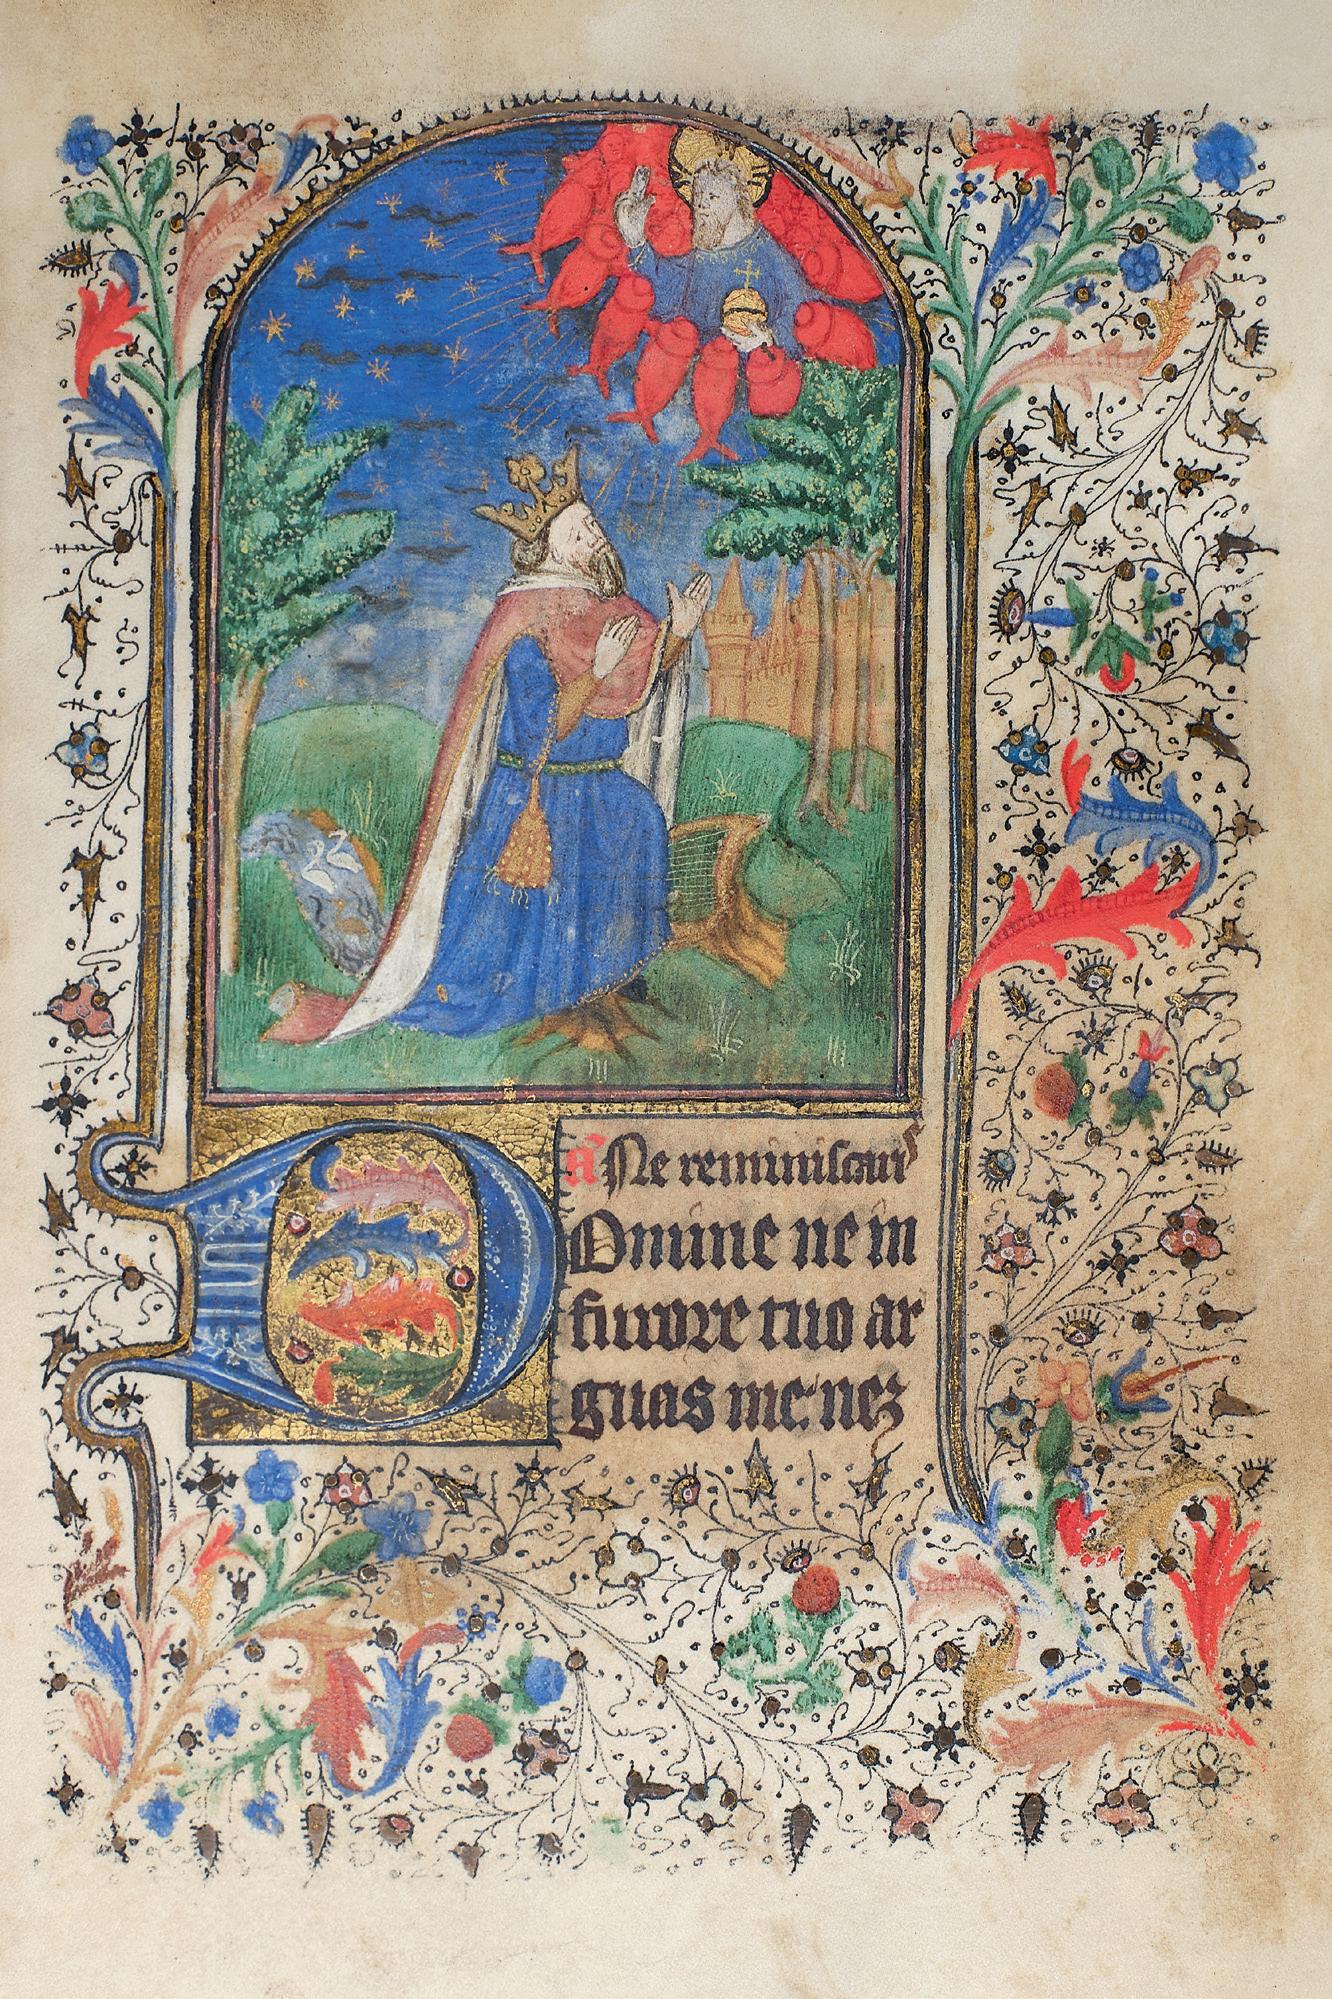 a Ne reminiscaris
Domine ne in
furore tuo ar
guas me: neq3